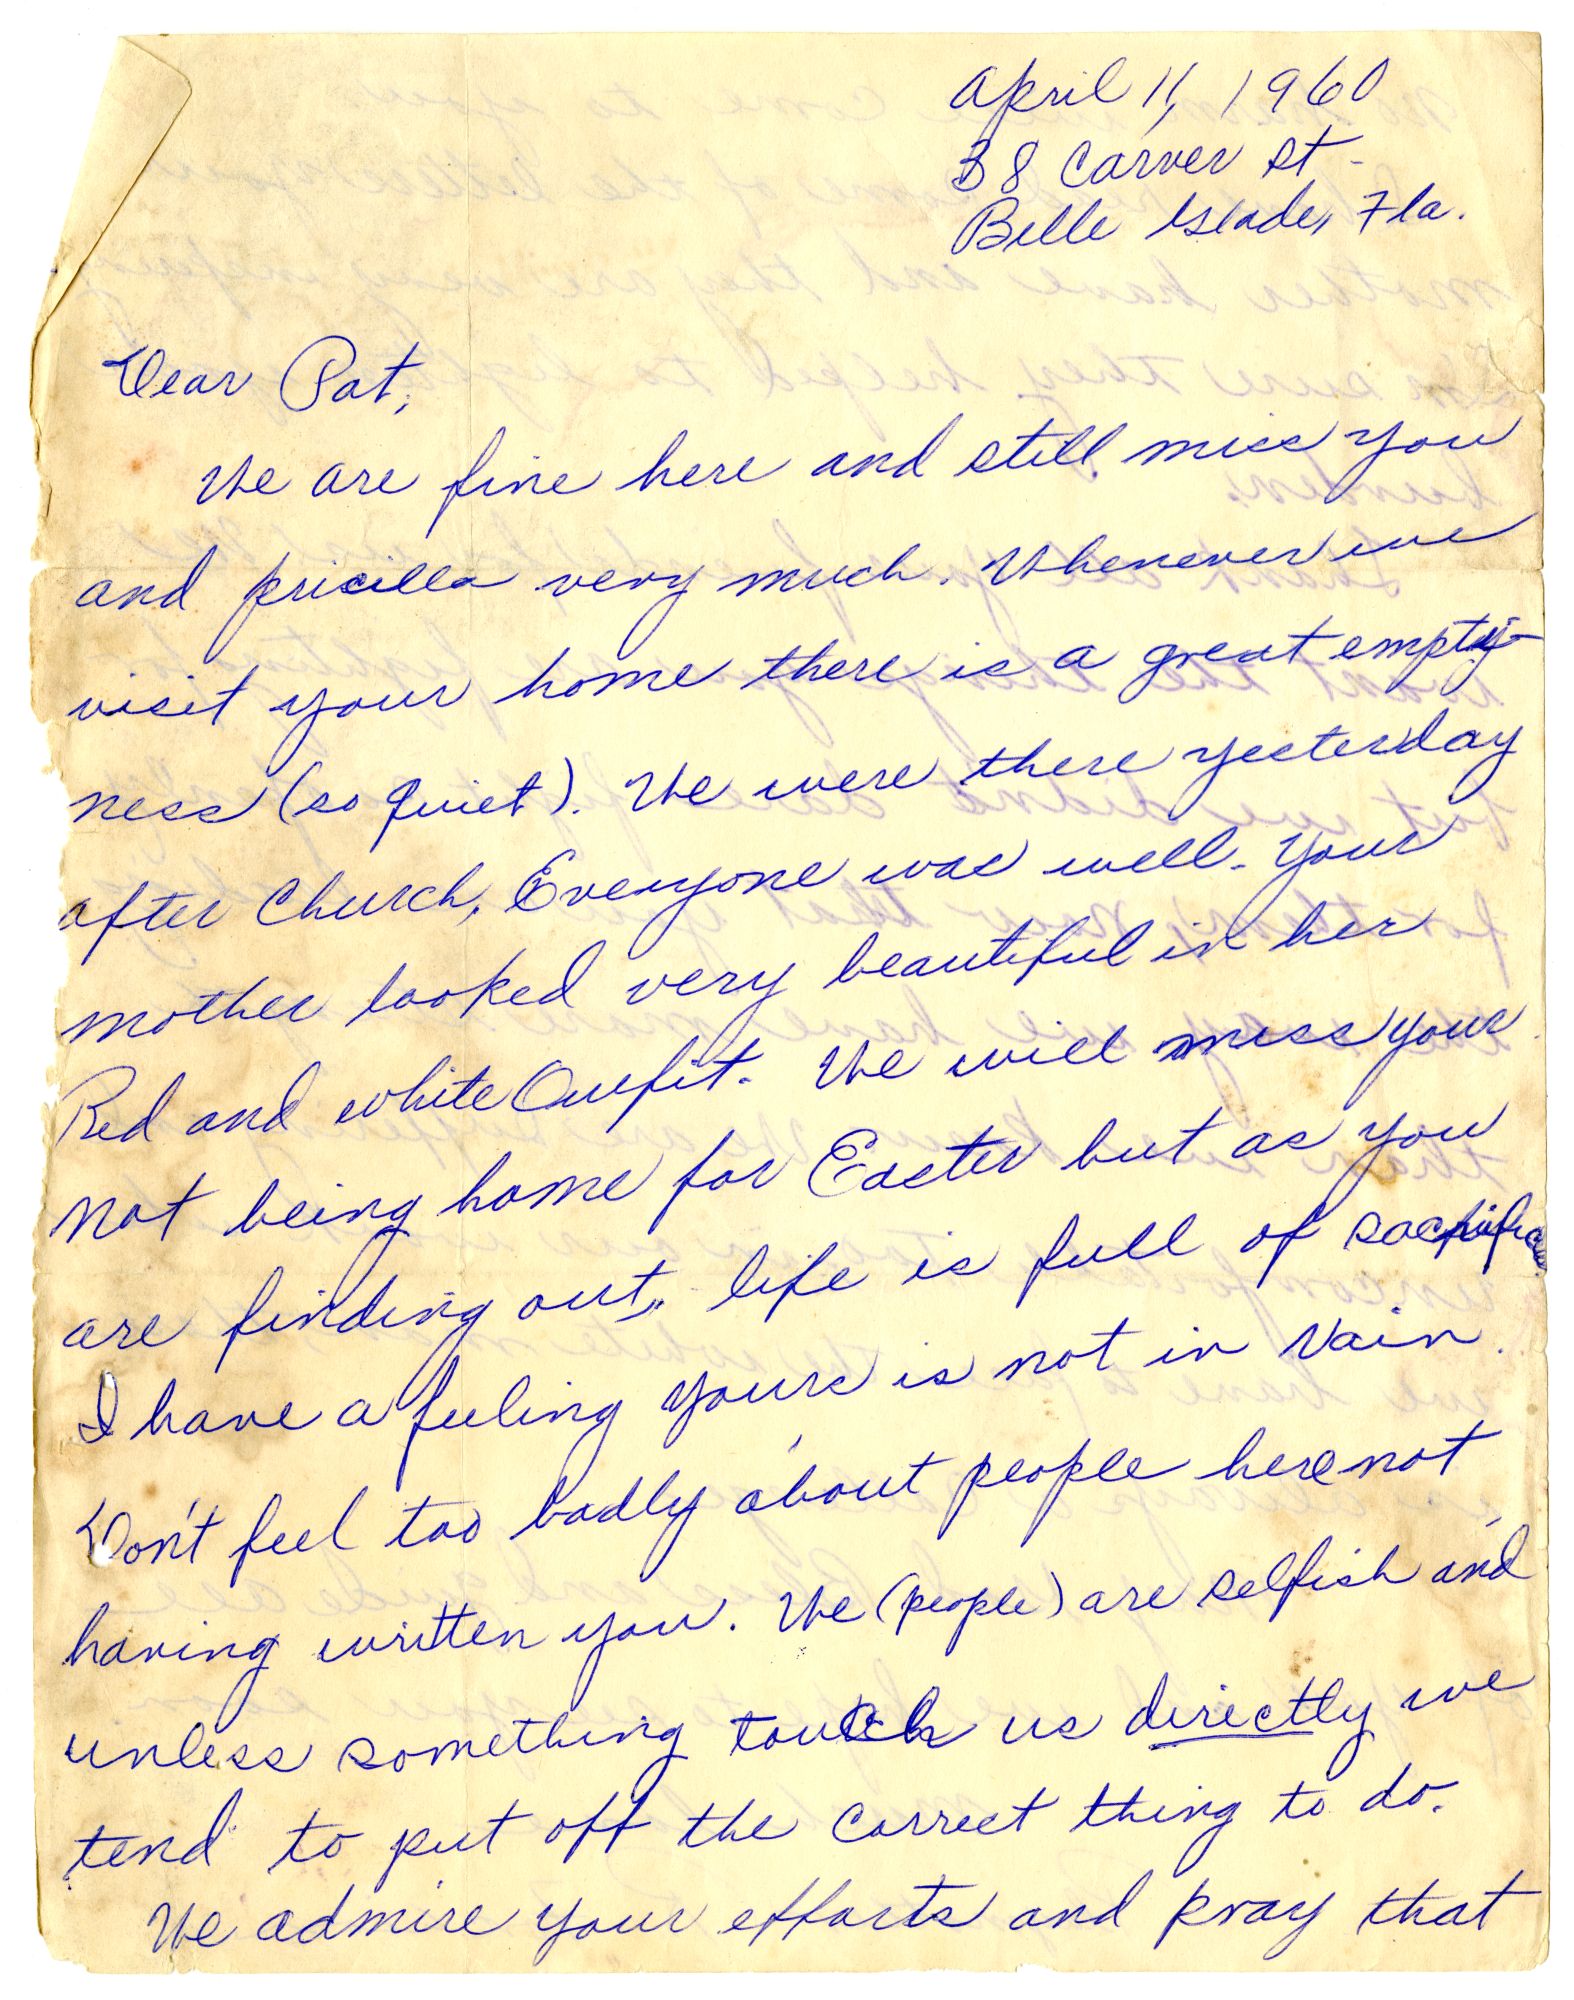 April 11, 1960
38 Carver St.
Belle Glade, Fla.
Dear Pat,
We are fine here and still miss you
and pricilla very much. Whenever we
visit your home there is a great empty-
ness (so quiet). We were there yesterday
after Church, Everyone was well. Your
mother looked very beautiful in her
Red and white Outfit. We will miss your
not being home for Easter but as you
are finding out, life is full of sacrifices
I have a feeling yours is not in vain.
Don't feel too badly about people here not
having written you. We (people) are selfish and
unless something touch us directly we
tend to put off the correct thing to do.
We admire your efforts and pray that